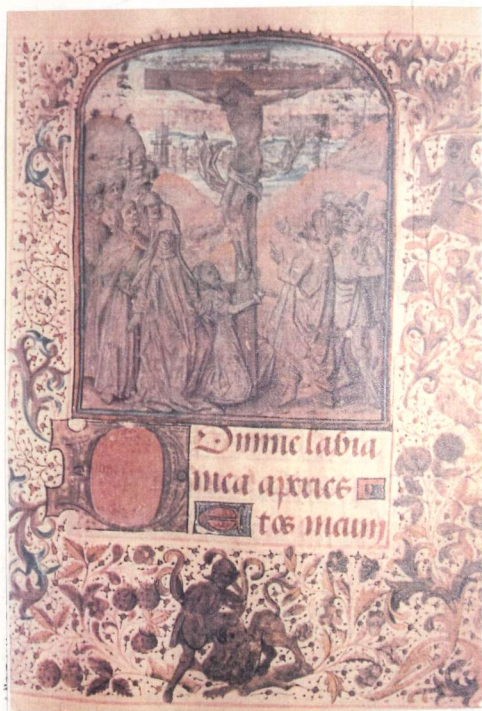 Domine labia
mea aperies
tos meum